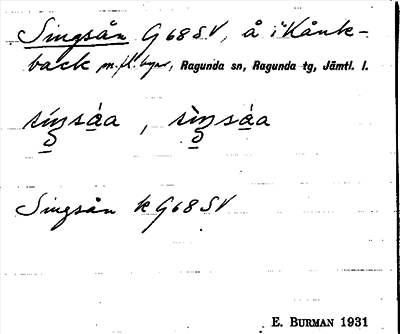 Singsån G 68 SV, å i Kånk-
back m.fl. byar, Ragunda sn, Ragunda tg, Jämtl. l.
sɩ́nsáa, sɩ̀nsáa
Singsån k G 68 SV
E. BURMAN 1931